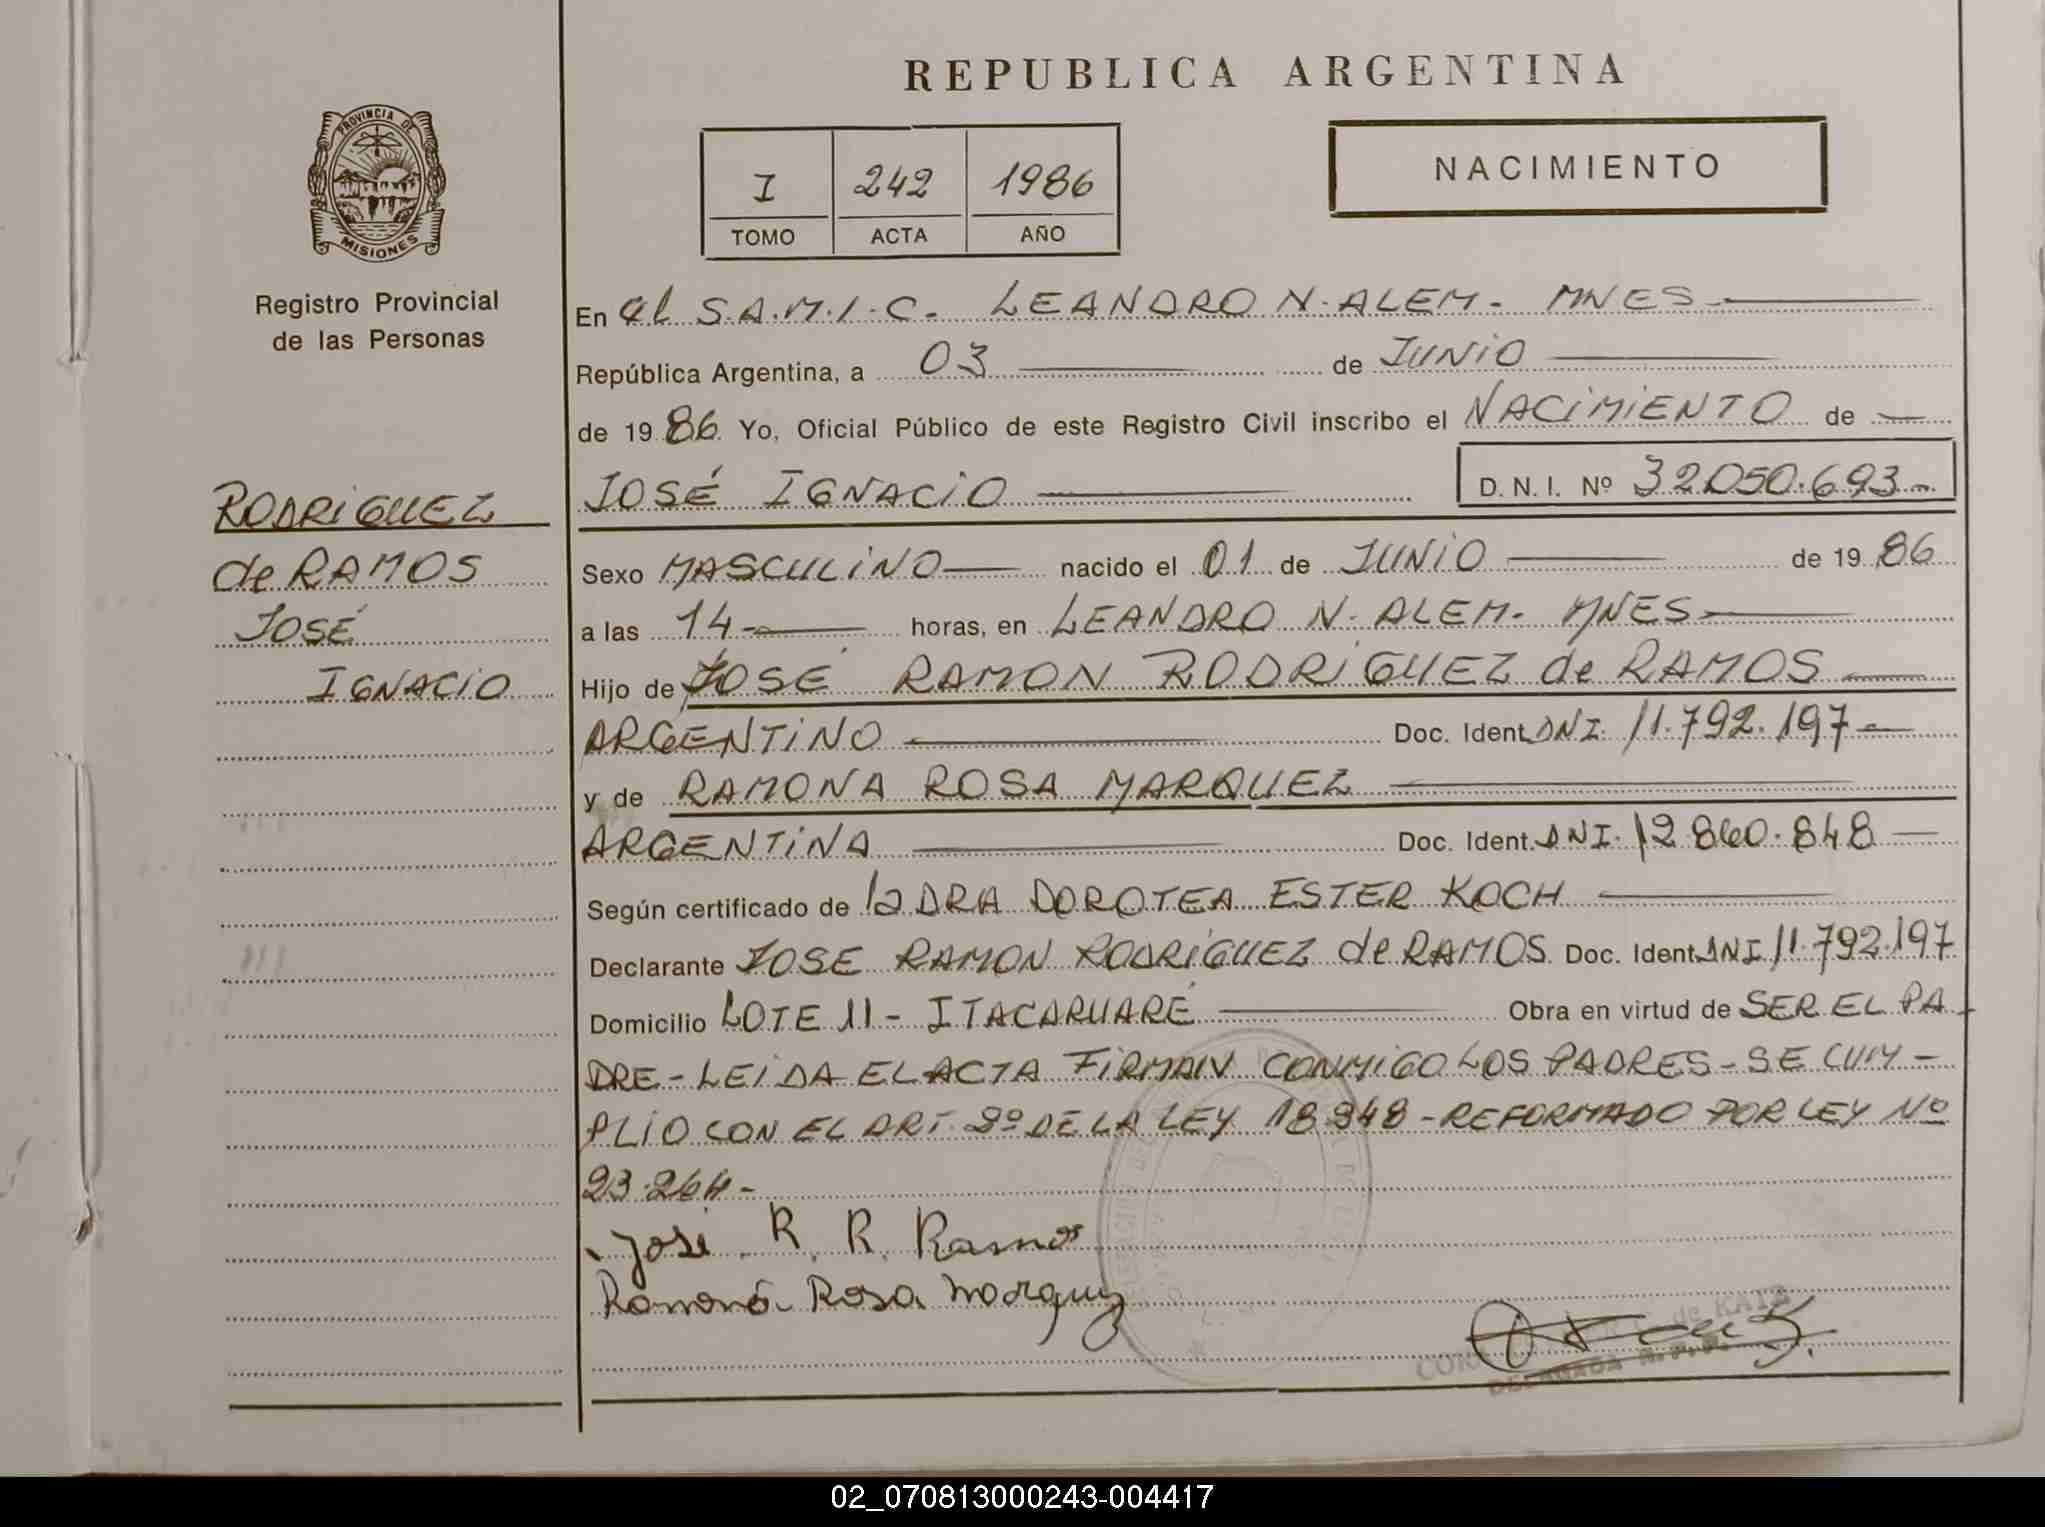 REPUBLICA ARGENTINA
PROVINCIA DE
MISIONES
Registro Provincial
de las Personas
I 242 1986
TOMO ACTA AÑO
NACIMIENTO
RODRIGUEZ
de RAMOS
JOSÉ
IGNACIO
En el S.A.M.I.C. LEANDRO N. ALEM - MNES
República Argentina, a 03 de JUNIO
de 1986 Yo, Oficial Público de este Registro Civil inscribo el NACIMIENTO de
JOSÉ IGNACIO D.N.I. Nº 32.050.693-
Sexo MASCULINO nacido el 01 de JUNIO de 1986
a las 14 horas, en LEANDRO N. ALEM - MNES
Hijo de JOSÉ RAMON RODRIGUEZ de RAMOS
ARGENTINO Doc. Ident. DNI. 11.792.197
y de RAMONA ROSA MARQUEZ
ARGENTINA Doc. Ident. DNI. 12.860.848
Según certificado de la DRA DOROTEA ESTER KOCH
Declarante JOSE RAMON RODRIGUEZ de RAMOS Doc. Ident. DNI 11.792.197
Domicilio LOTE 11 - ITACARUARÉ Obra en virtud de SER EL PA-
DRE - LEIDA EL ACTA FIRMAN CONMIGO LOS PADRES - SE CUM-
PLIO CON EL ART. 2º DE LA LEY 18.248 - REFORMADO POR LEY Nº
23.264-
José R. R. Ramos
Ramona Rosa Marquez
de KATZ
DELEGADA R.P.P.
02_070813000243-004417